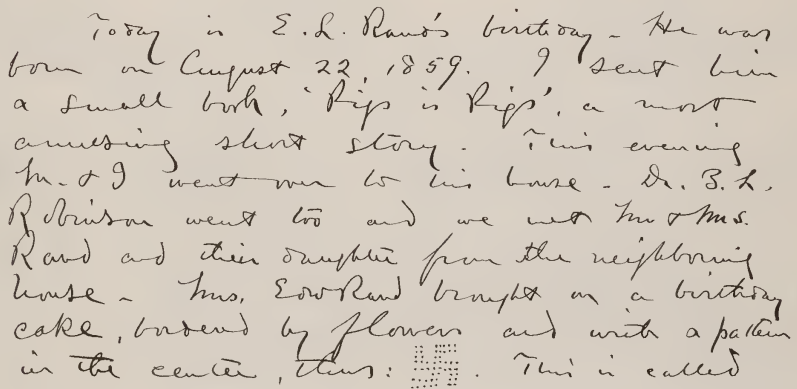 Today is E. L. Rand's birthday - He was
born on August 22, 1859. I sent him
a small book, 'Pigs is Pigs', a most
amusing short story. This evening
M. & I went over to his house - Dr. B. L.
Robinson went too and we met Mr & Mrs.
Rand and their daughter from the neighboring
house - Mrs. Edw Rand brought in a birthday
cake, bordered by flowers and with a pattern
in the center, thus: . This is called